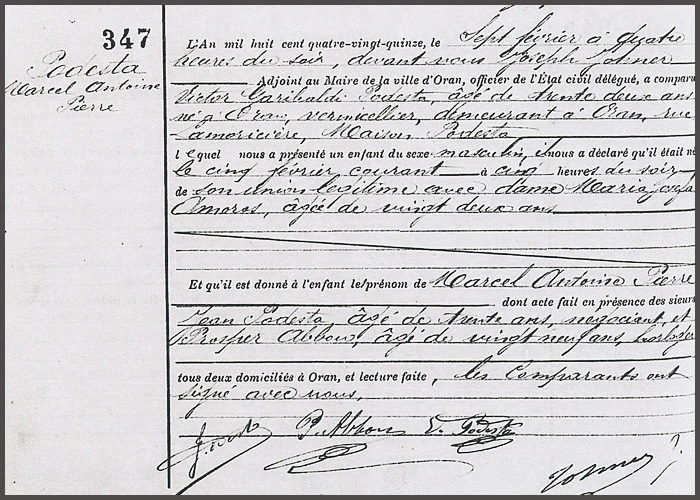 347
Podesta
Marcel Antoine
Pierre
L'An mil huit cent quatre-vingt-quinze, le Sept février à quatre
heures du soir, devant nous Joseph
Adjoint au Maire de la ville d'Oran, officier de l'État civil délégué, a comparu
Victor Garibaldi Podesta, âgé de trente deux ans
né à Oran, vermicellier, demeurant à Oran, rue
Lamoricière, Maison Podesta
lequel nous a présenté un enfant du sexe masculin, il nous a déclaré qu'il était né
le cinq février courant à cinq heures du soir
de son union légitime avec dame Maria Josefa
Amoros, âgée de vingt deux ans
Et qu'il est donné à l'enfant le prénom de Marcel Antoine Pierre
dont acte fait en présence des sieurs
Jean Podesta, âgé de trente ans, négociant, et
Prosper Abbou, âgé de vingt neuf ans, horloger
tous deux domiciliés à Oran, et lecture faite, les comparants ont
signé avec nous,
P. Abbou V. Podesta